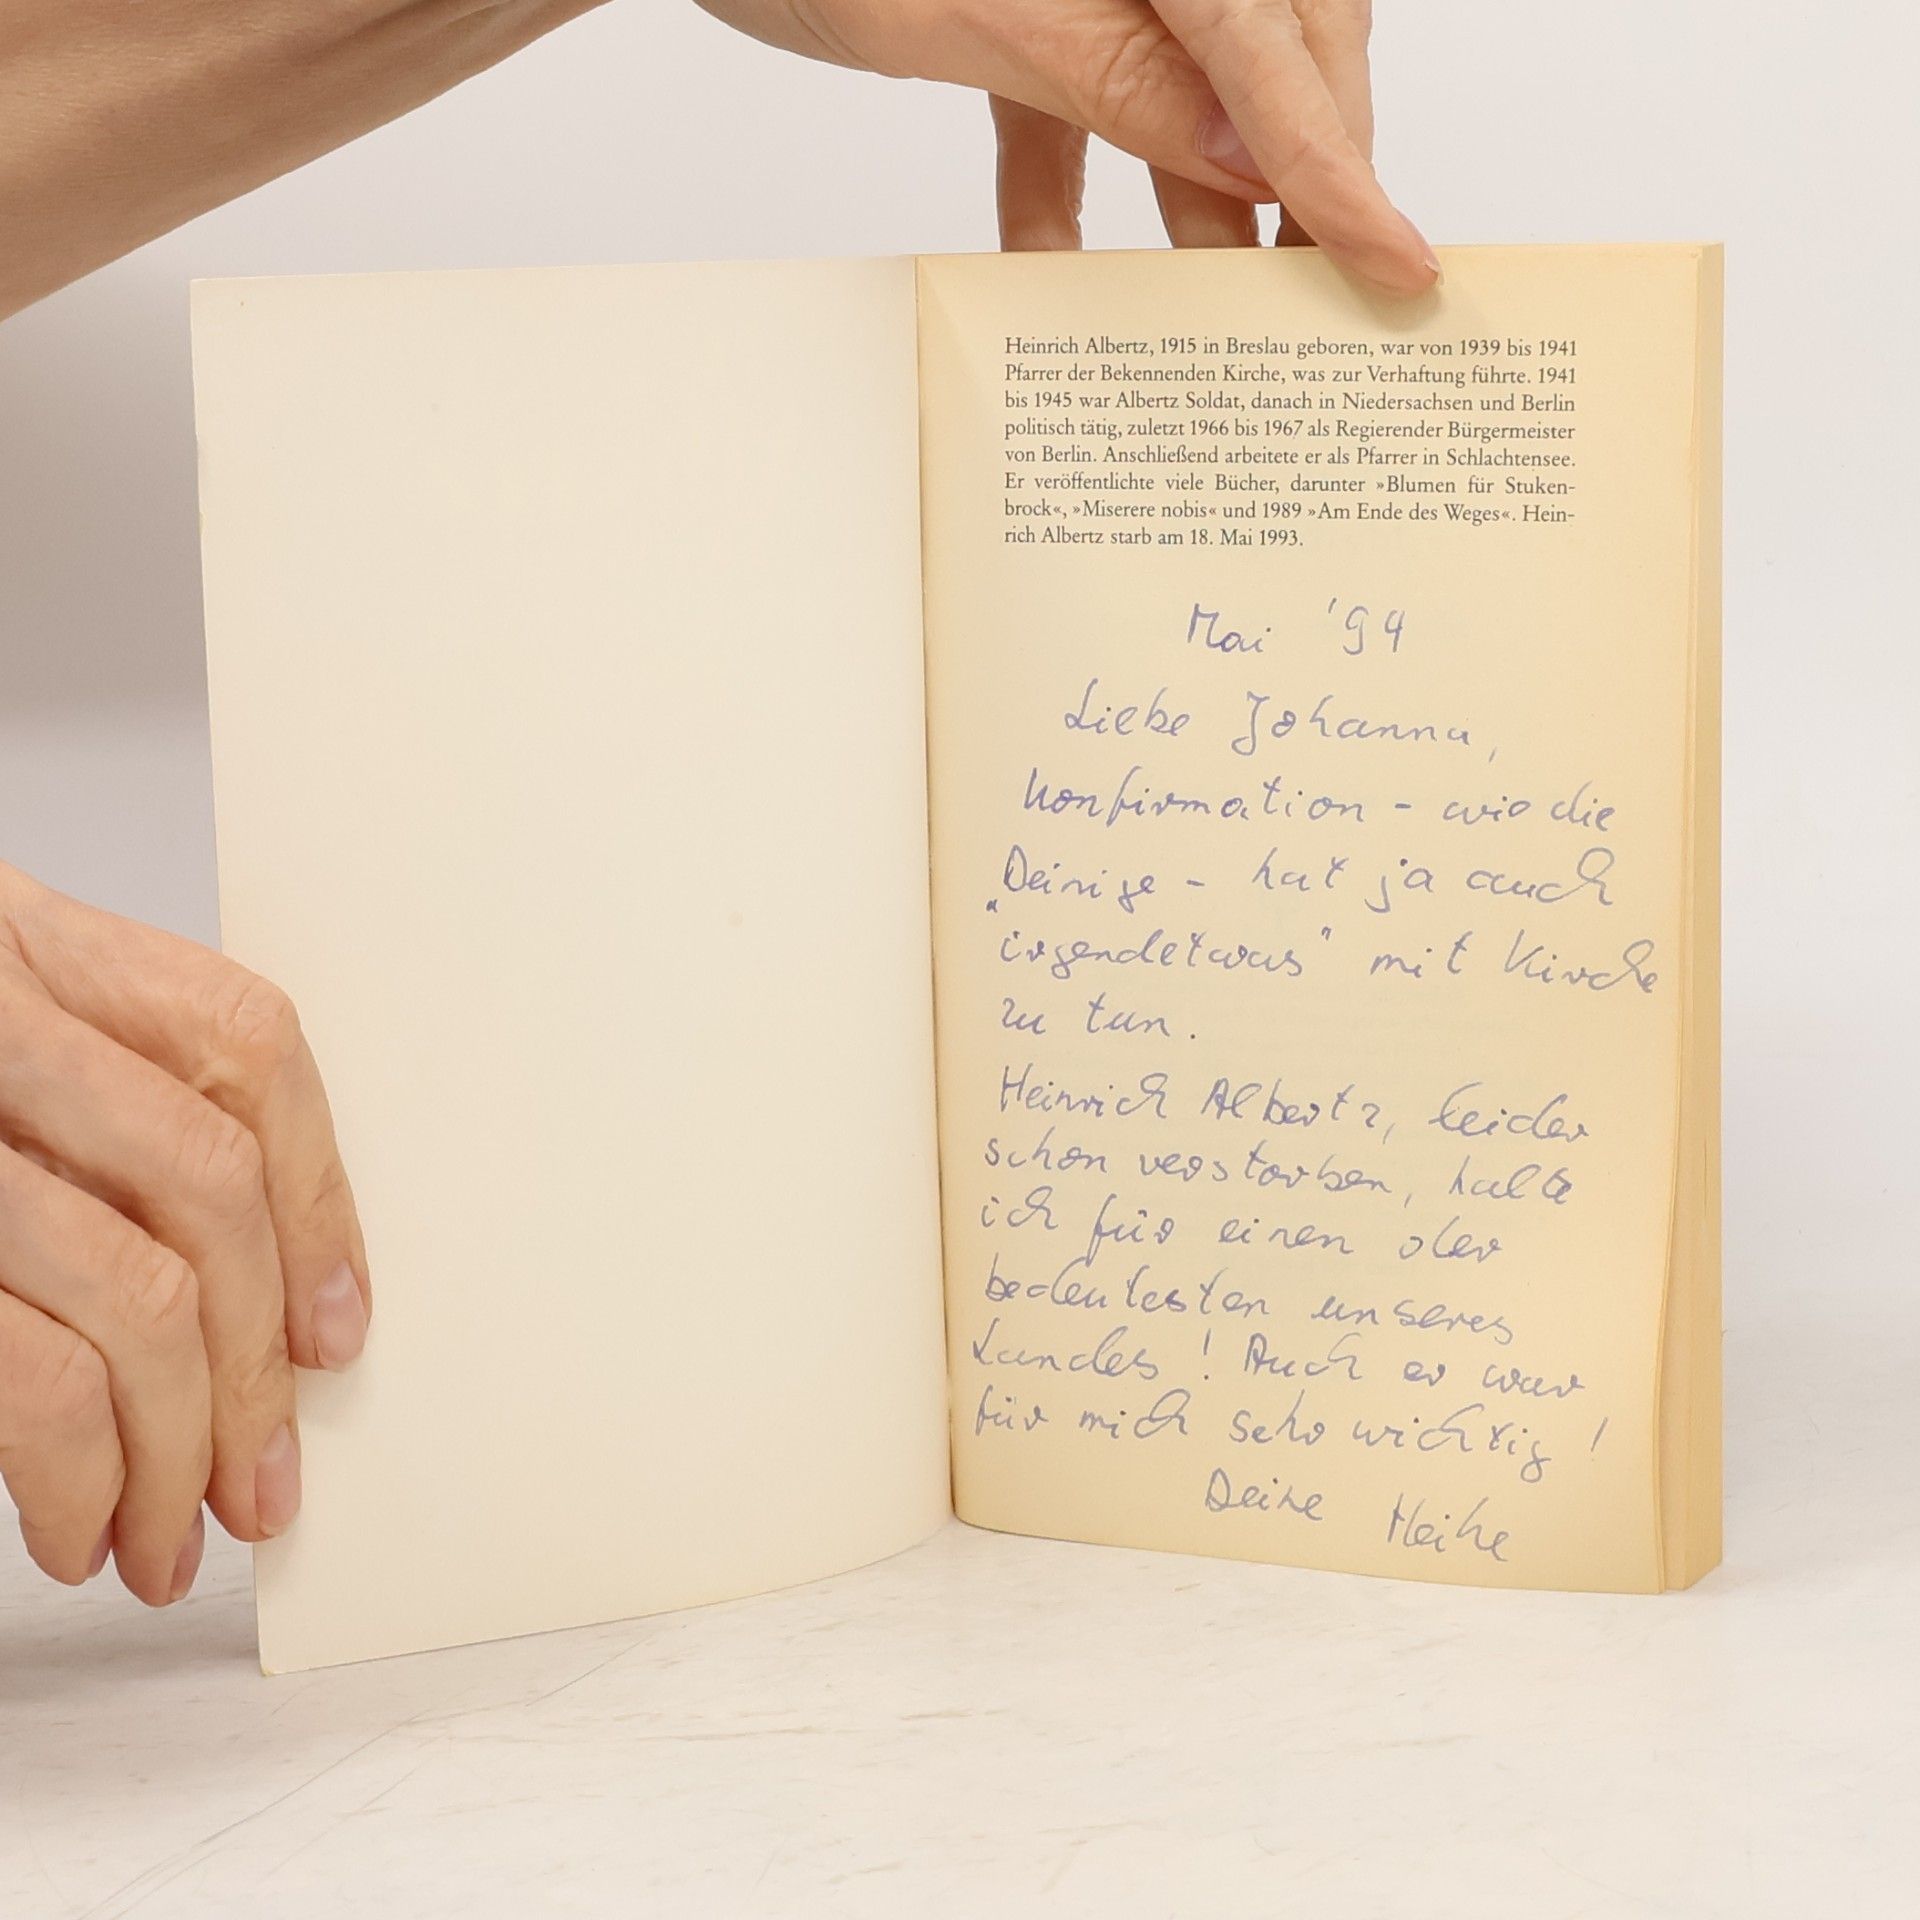 Heinrich Albertz, 1915 in Breslau geboren, war von 1939 bis 1941
Pfarrer der Bekennenden Kirche, was zur Verhaftung führte. 1941
bis 1945 war Albertz Soldat, danach in Niedersachsen und Berlin
politisch tätig, zuletzt 1966 bis 1967 als Regierender Bürgermeister
von Berlin. Anschließend arbeitete er als Pfarrer in Schlachtensee.
Er veröffentlichte viele Bücher, darunter »Blumen für Stuken-
brock«, »Miserere nobis« und 1989 »Am Ende des Weges«. Hein-
rich Albertz starb am 18. Mai 1993.
Mai '94
Liebe Johanna,
Konfirmation - wie die
Deinige - hat ja auch
„irgendetwas" mit Kirche
zu tun.
Heinrich Albertz, leider
schon verstorben, halte
ich für einen der
bedeutesten unseres
Landes! Auch er war
für mich sehr wichtig!
Deine Heike